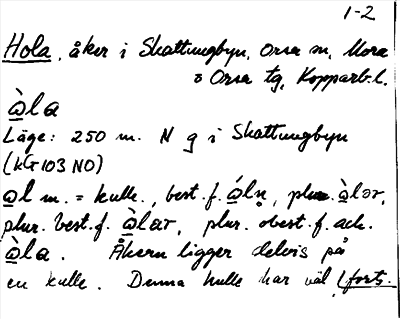 1-2
Hola, åker i Skattungbyn, Orsa sn, Mora
o Orsa tg, Kopparb. l.
ὰla
Läge: 250 m. N g i Skattungbyn
(kG 103 NO)
al m. = kulle., best. f. áln̥, plur. àlər,
plur. best. f. àlär, plur. obest. f. ack.
àla. Åkern ligger delvis på
en kulle. Denna kulle har väl (forts.